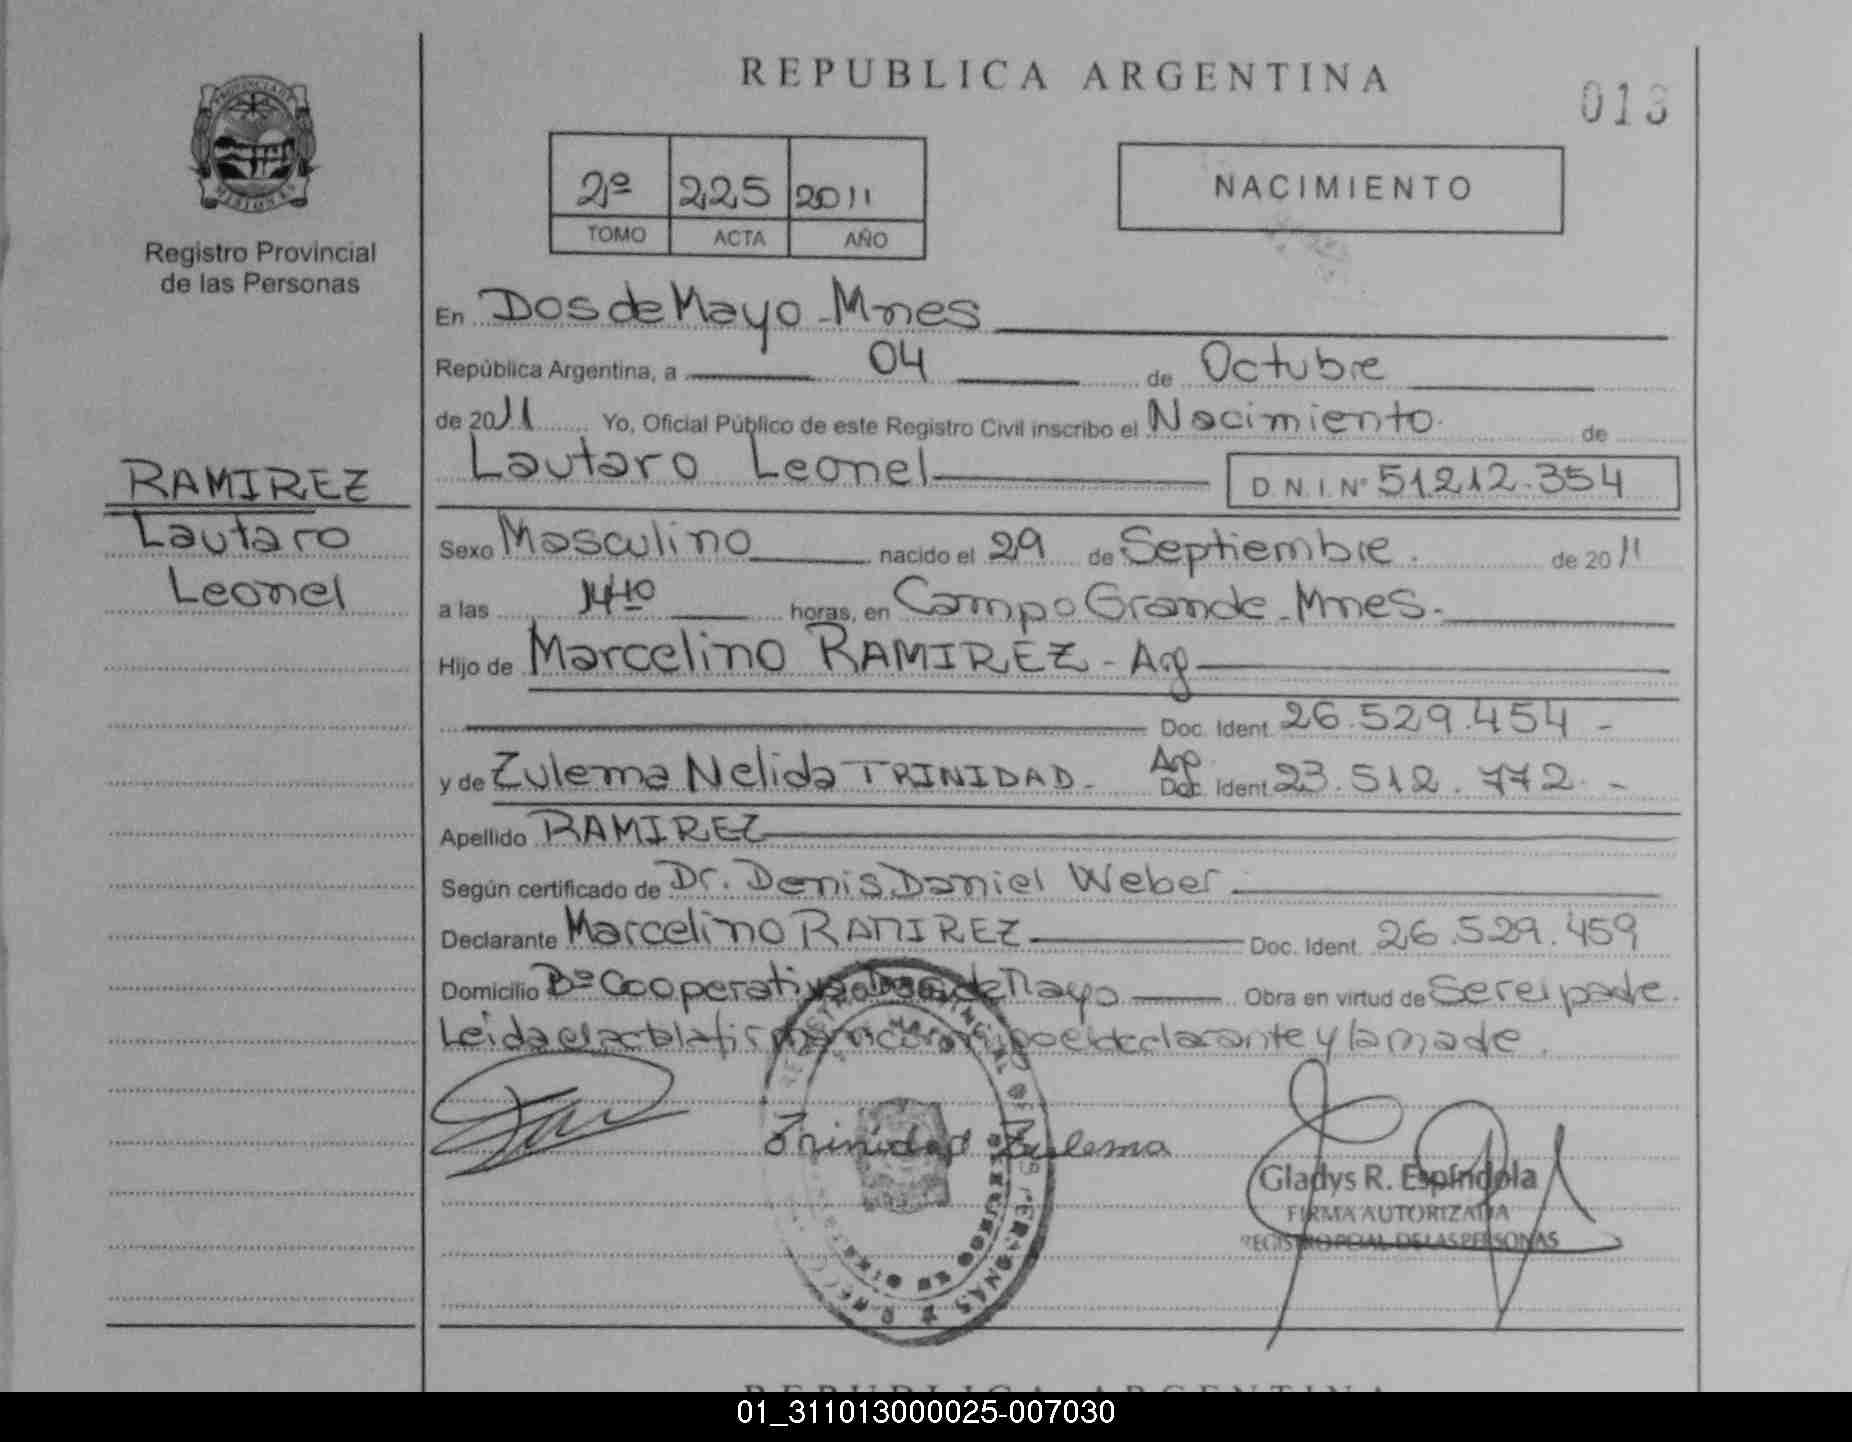 REPUBLICA ARGENTINA
013
PROVINCIA DE
MISIONES
Registro Provincial
de las Personas
2º 225 2011
TOMO ACTA AÑO
NACIMIENTO
En Dos de Mayo - Mnes
República Argentina, a 04 de Octubre
de 2011 Yo, Oficial Público de este Registro Civil inscribo el Nacimiento de
Lautaro Leonel D.N.I. Nº 51.212.354
RAMIREZ
Lautaro
Leonel
Sexo Masculino nacido el 29 de Septiembre. de 2011
a las 14:40 horas, en Campo Grande - Mnes.
Hijo de Marcelino RAMIREZ - Arg
Doc. Ident. 26.529.454 -
y de Zulema Nelida TRINIDAD - Arg. Doc. Ident. 23.512.772 -
Apellido RAMIREZ
Según certificado de Dr. Denis Daniel Weber
Declarante Marcelino RAMIREZ Doc. Ident. 26.529.459
Domicilio Bº Cooperativa Dos de Mayo Obra en virtud de Ser el padre.
Leida el acta la firman conmigo el declarante y la madre.
Trinidad Zulema
Gladys R. Espíndola
FIRMA AUTORIZADA
REGISTRO PCIAL. DE LAS PERSONAS
REPUBLICA ARGENTINA
01_311013000025-007030